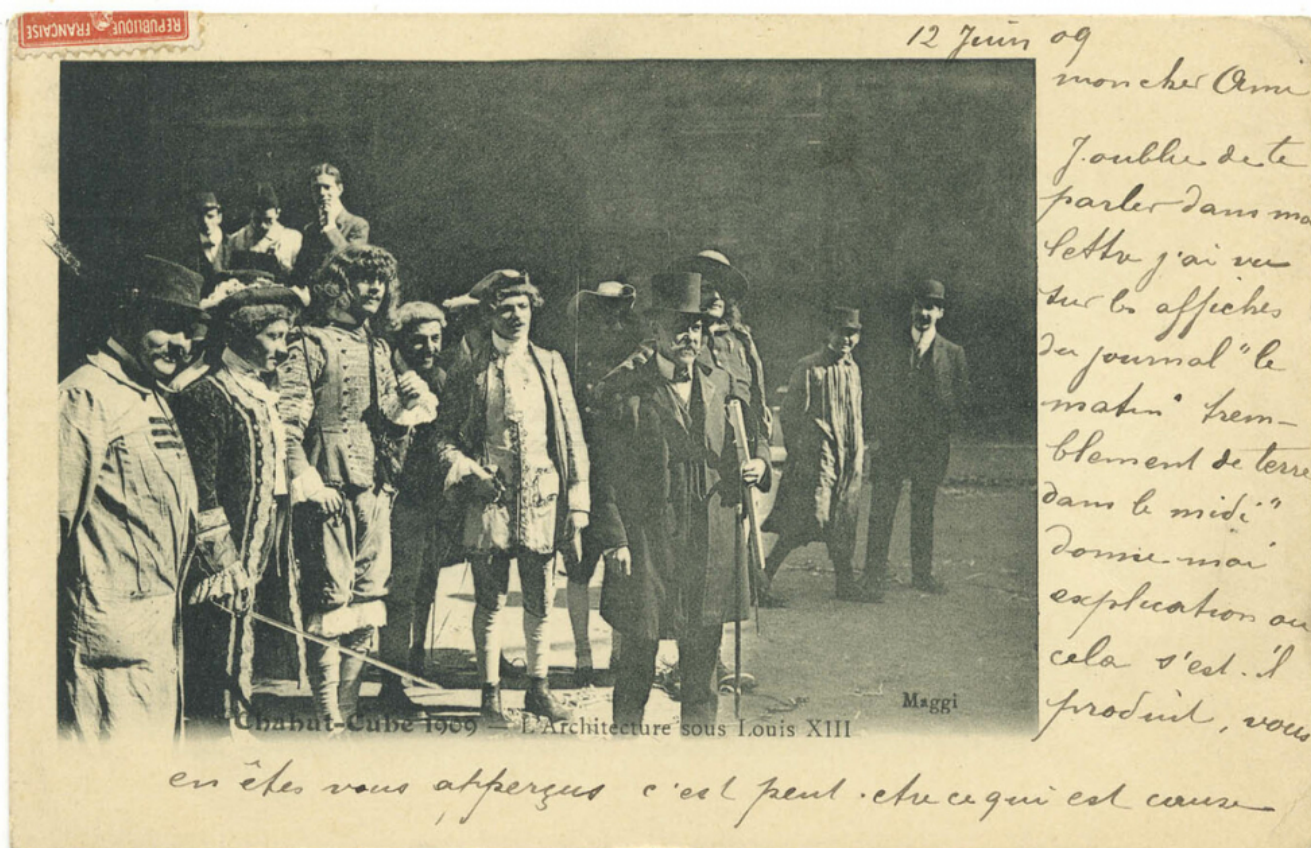 REPUBLIQUE FRANÇAISE
12 Juin 09
mon cher Ami
J'oublie de te
parler dans ma
lettre j'ai vu
sur les affiches
du journal "le
matin" trem-
blement de terre
dans le midi"
donne-moi
explication ou
cela s'est-il
produit, vous
en êtes vous apperçus c'est peut-etre ce qui est cause
Maggi
Chahut-Cube 1909 — L'Architecture sous Louis XIII